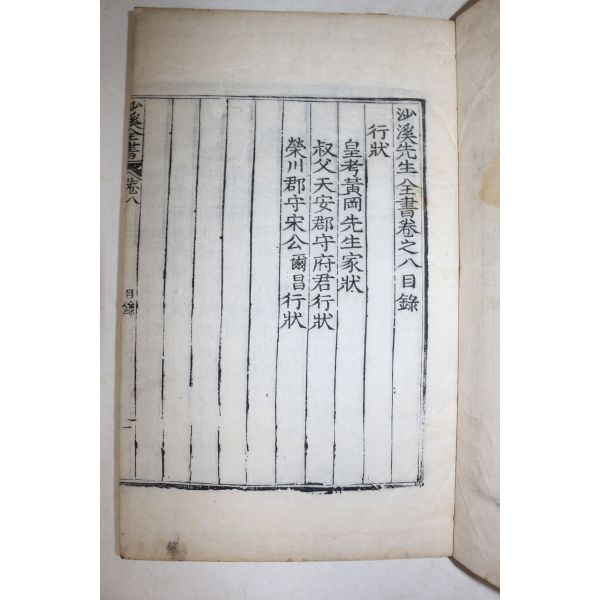 沙溪先生全書卷之八目錄
行狀
皇考黃岡先生家狀
叔父天安郡守府君行狀
榮川郡守宋公爾昌行狀
沙溪全書
卷八
目錄
一